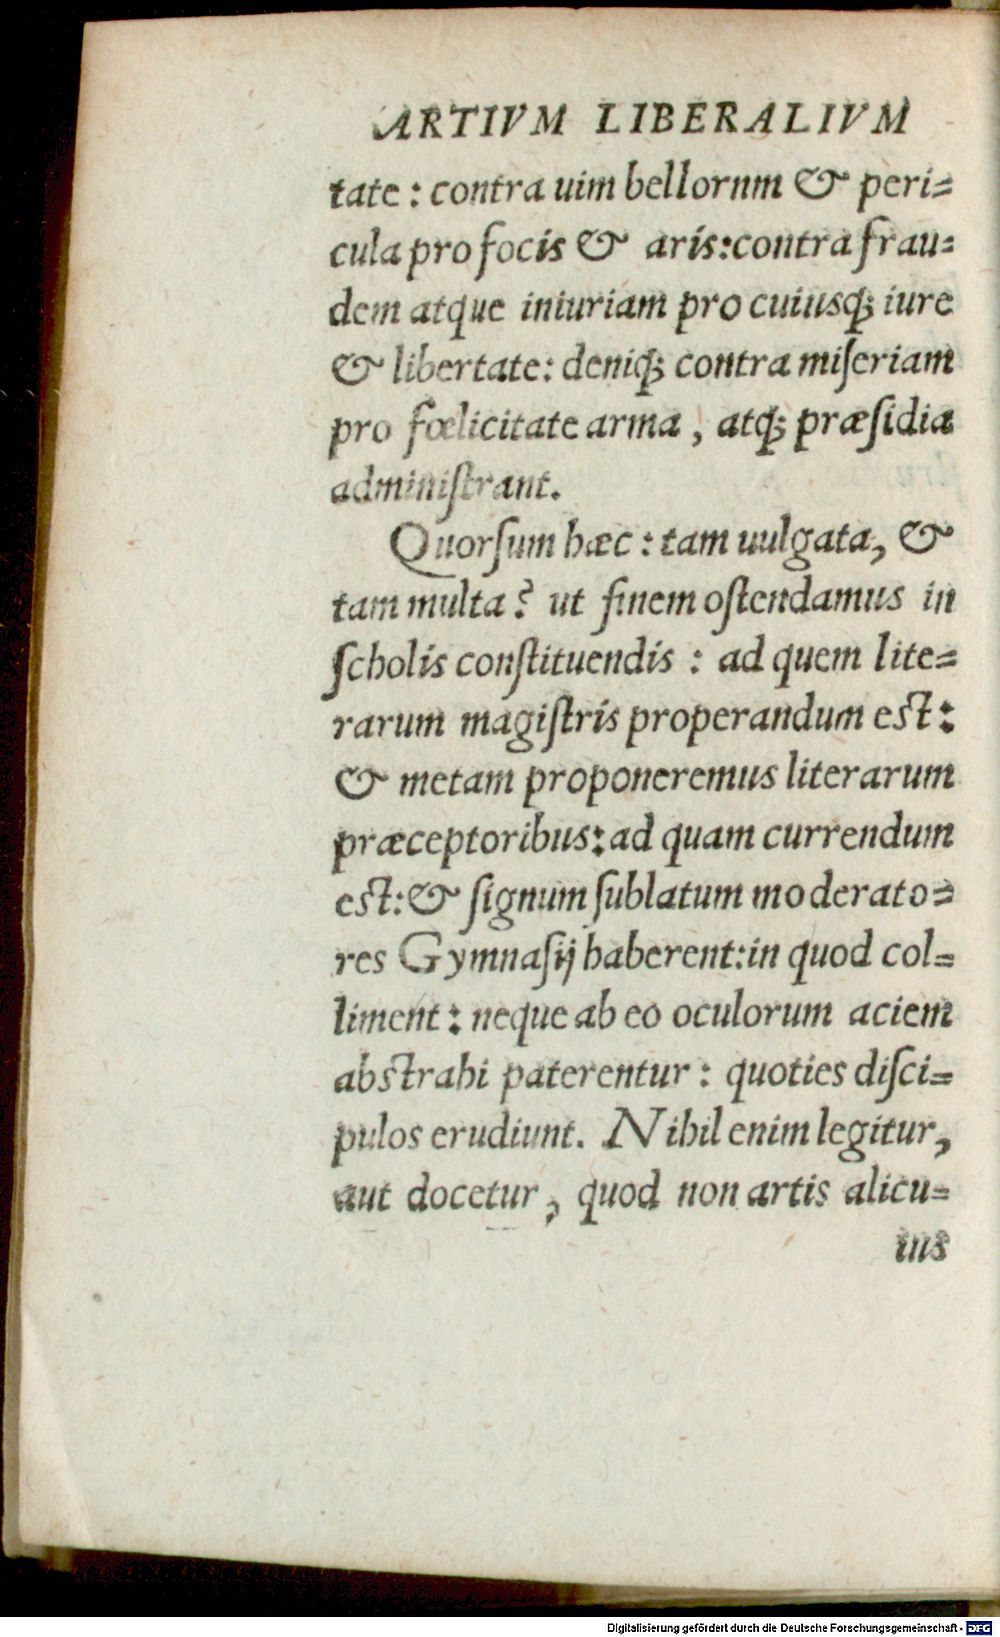 ARTIVM LIBERALIVM
tate: contra uim bellornm & peri=
cula pro focis & aris: contra frau=
dem atque iniuriam pro cuiusq́; iure
& libertate: deniq́; contra miſeriam
pro fœlicitate arma, atq́; præſidia
adminiſtrant.
Quorſum hæc: tam uulgata, &
tam multa? ut finem oſtendamus in
ſcholis conſtituendis: ad quem lite=
rarum magiſtris properandum eſt:
& metam proponeremus literarum
præceptoribus: ad quam currendum
eſt: & ſignum ſublatum moderato=
res Gymnaſij haberent: in quod col=
liment: neque ab eo oculorum aciem
abſtrahi paterentur: quoties diſci=
pulos erudiunt. Nihil enim legitur,
aut docetur, quod non artis alicu=
ius
Digitalisierung gefördert durch die Deutsche Forschungsgemeinschaft - DFG